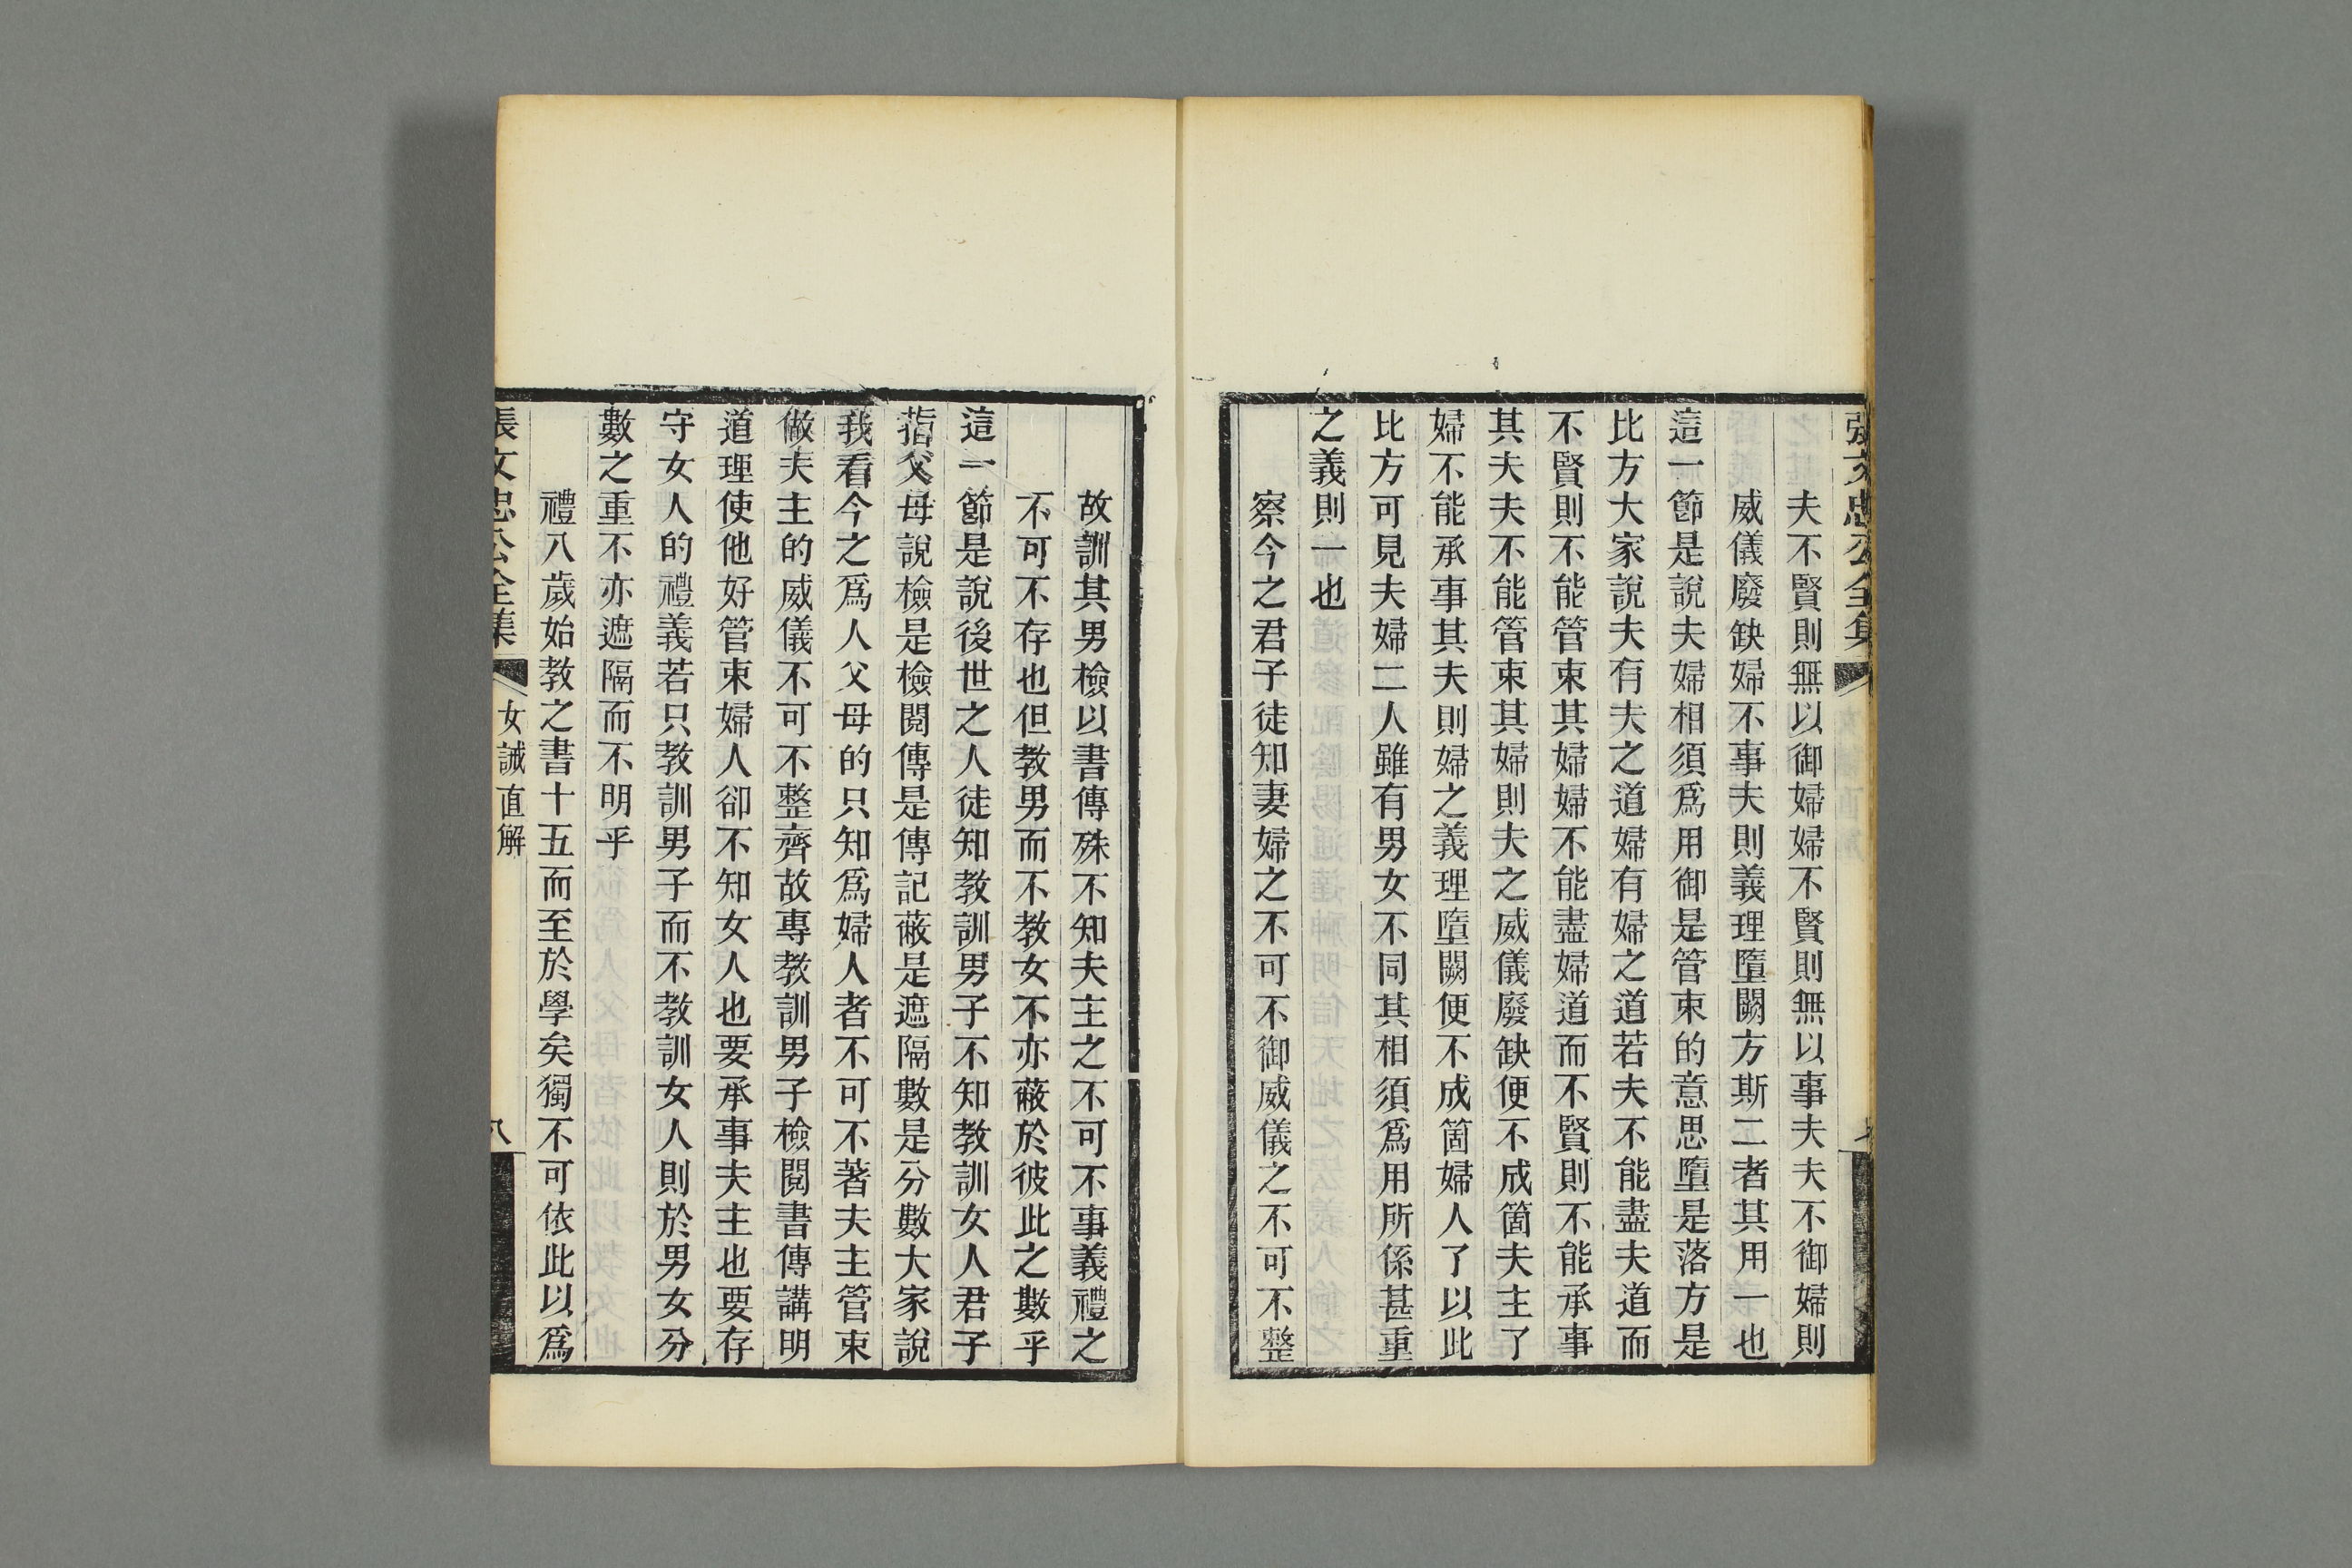 張文忠公全集
夫不賢則無以御婦婦不賢則無以事夫夫不御婦則
威儀廢缺婦不事夫則義理墮闕方斯二者其用一也
這一節是說夫婦相須爲用御是管束的意思墮是落方是
比方大家說夫有夫之道婦有婦之道若夫不能盡夫道而
不賢則不能管束其婦婦不能盡婦道而不賢則不能承事
其夫夫不能管束其婦則夫之威儀廢缺便不成箇夫主了
婦不能承事其夫則婦之義理墮闕便不成箇婦人了以此
比方可見夫婦二人雖有男女不同其相須爲用所係甚重
之義則一也
察今之君子徒知妻婦之不可不御威儀之不可不整
故訓其男檢以書傳殊不知夫主之不可不事義禮之
不可不存也但教男而不教女不亦蔽於彼此之數乎
這一節是說後世之人徒知教訓男子不知教訓女人君子
指父母說檢是檢閱傳是傳記蔽是遮隔數是分數大家說
我看今之爲人父母的只知爲婦人者不可不著夫主管束
做夫主的威儀不可不整齊故專教訓男子檢閱書傳講明
道理使他好管束婦人卻不知女人也要承事夫主也要存
守女人的禮義若只教訓男子而不教訓女人則於男女分
數之重不亦遮隔而不明乎
禮八歲始教之書十五而至於學矣獨不可依此以爲
張文忠公全集
女誡直解
八